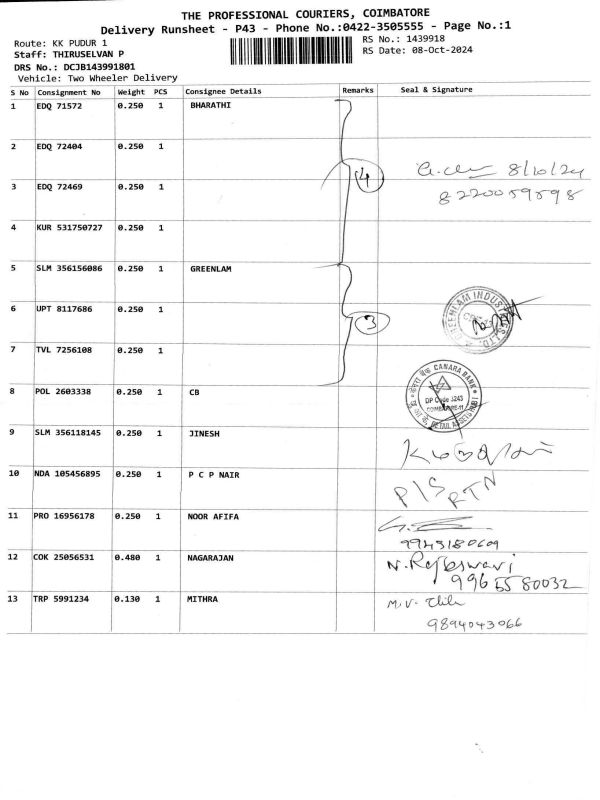 THE PROFESSIONAL COURIERS, COIMBATORE
Delivery Runsheet - P43 - Phone No.:0422-3505555 - Page No.:1
Route: KK PUDUR 1
RS No.: 1439918
Staff: THIRUSELVAN P
RS Date: 08-Oct-2024
DRS No.: DCJB143991801
Vehicle: Two Wheeler Delivery
S No Consignment No Weight PCS Consignee Details Remarks Seal & Signature
1 EDQ 71572 0.250 1 BHARATHI
2 EDQ 72404 0.250 1
8/10/24
3 EDQ 72469 0.250 1 4
8220059598
4 KUR 531750727 0.250 1
5 SLM 356156086 0.250 1 GREENLAM
6 UPT 8117686 0.250 1 3
GREENLAM INDUSTRIES LTD.
7 TVL 7256108 0.250 1
8 POL 2603338 0.250 1 CB
CANARA BANK
DP Code
COIMBATORE-11
RETAIL ASSETS HUB
9 SLM 356118145 0.250 1 JINESH
10 NDA 105456895 0.250 1 P C P NAIR
11 PRO 16956178 0.250 1 NOOR AFIFA
9943180609
12 COK 25056531 0.480 1 NAGARAJAN N. Rajeswari
9965580032
13 TRP 5991234 0.130 1 MITHRA M.V.
9894043066